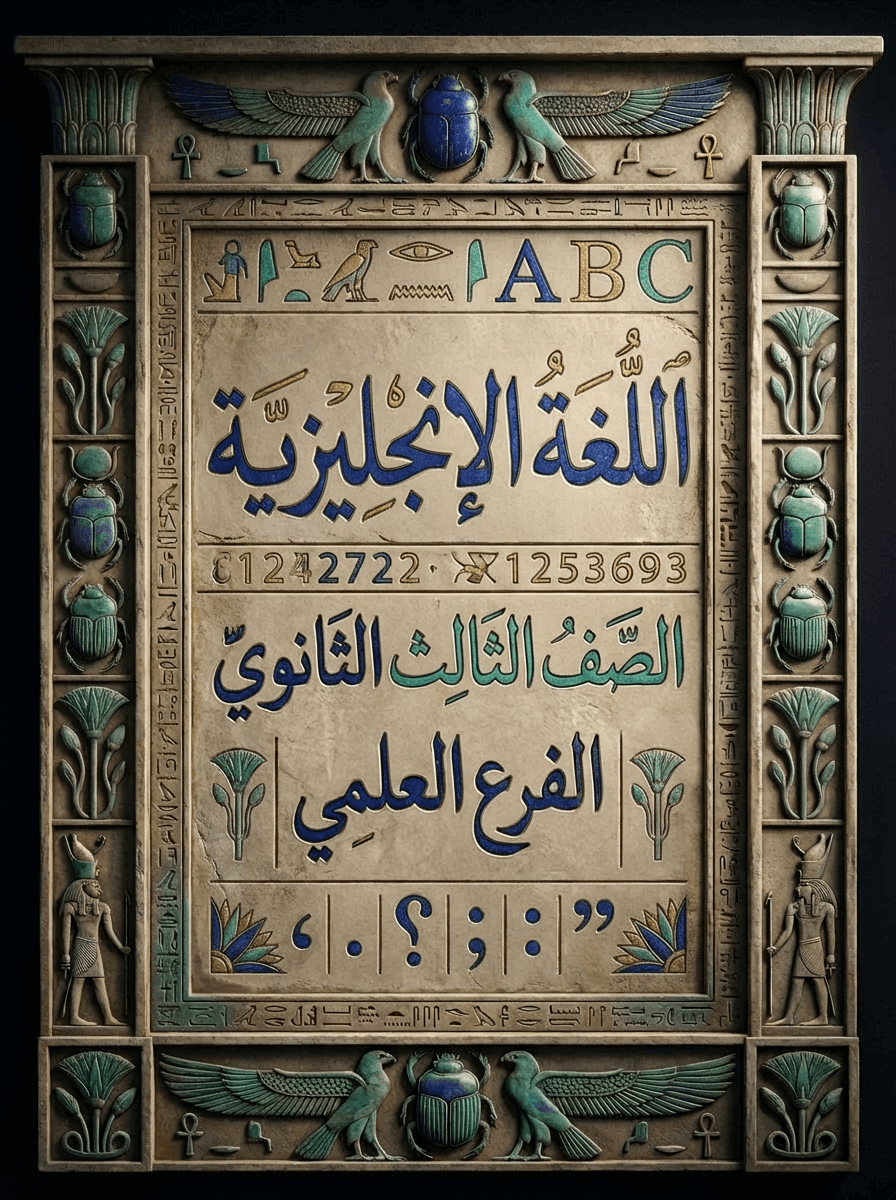 ABC
اَللُّغَةُ الإِنْجْلِيزِيَّة
1242722 · 1253693
الصَّفُ الثَالِث الثَانويّ
الفرع العلمِي
، . ؟ ; : ”